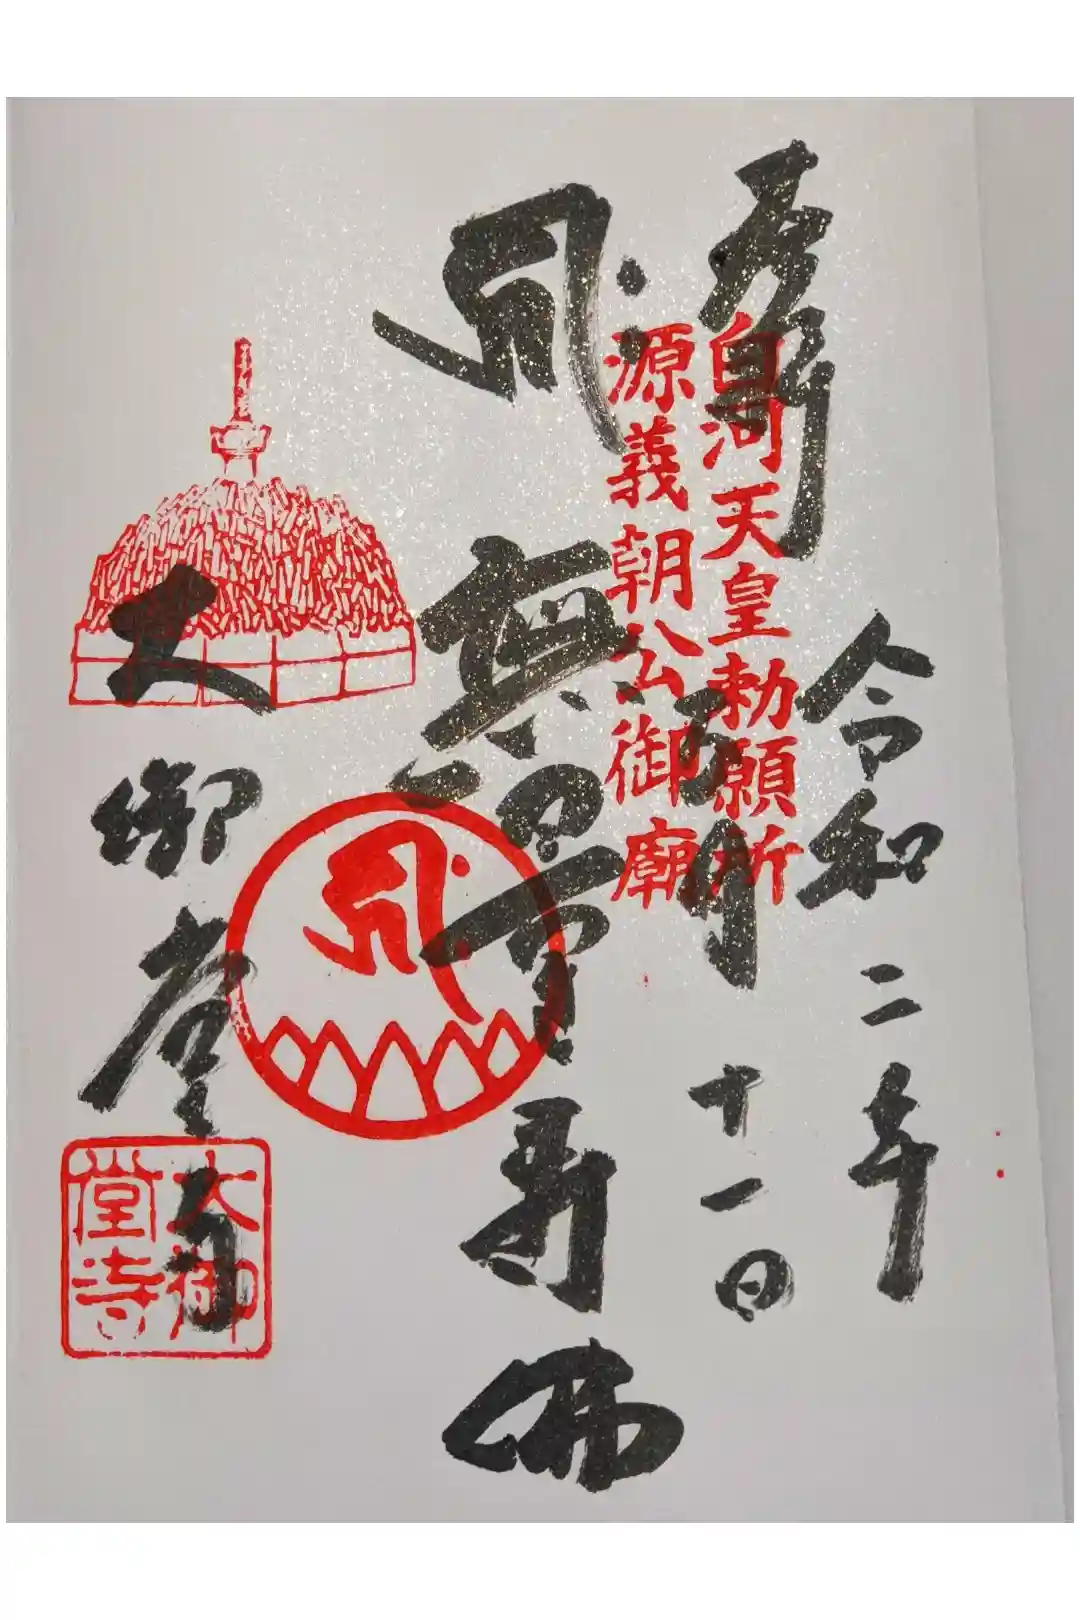 奉拝
白河天皇勅願所
源義朝公御廟
令和二年
十一日
無量寿佛
大御堂寺
大御堂寺